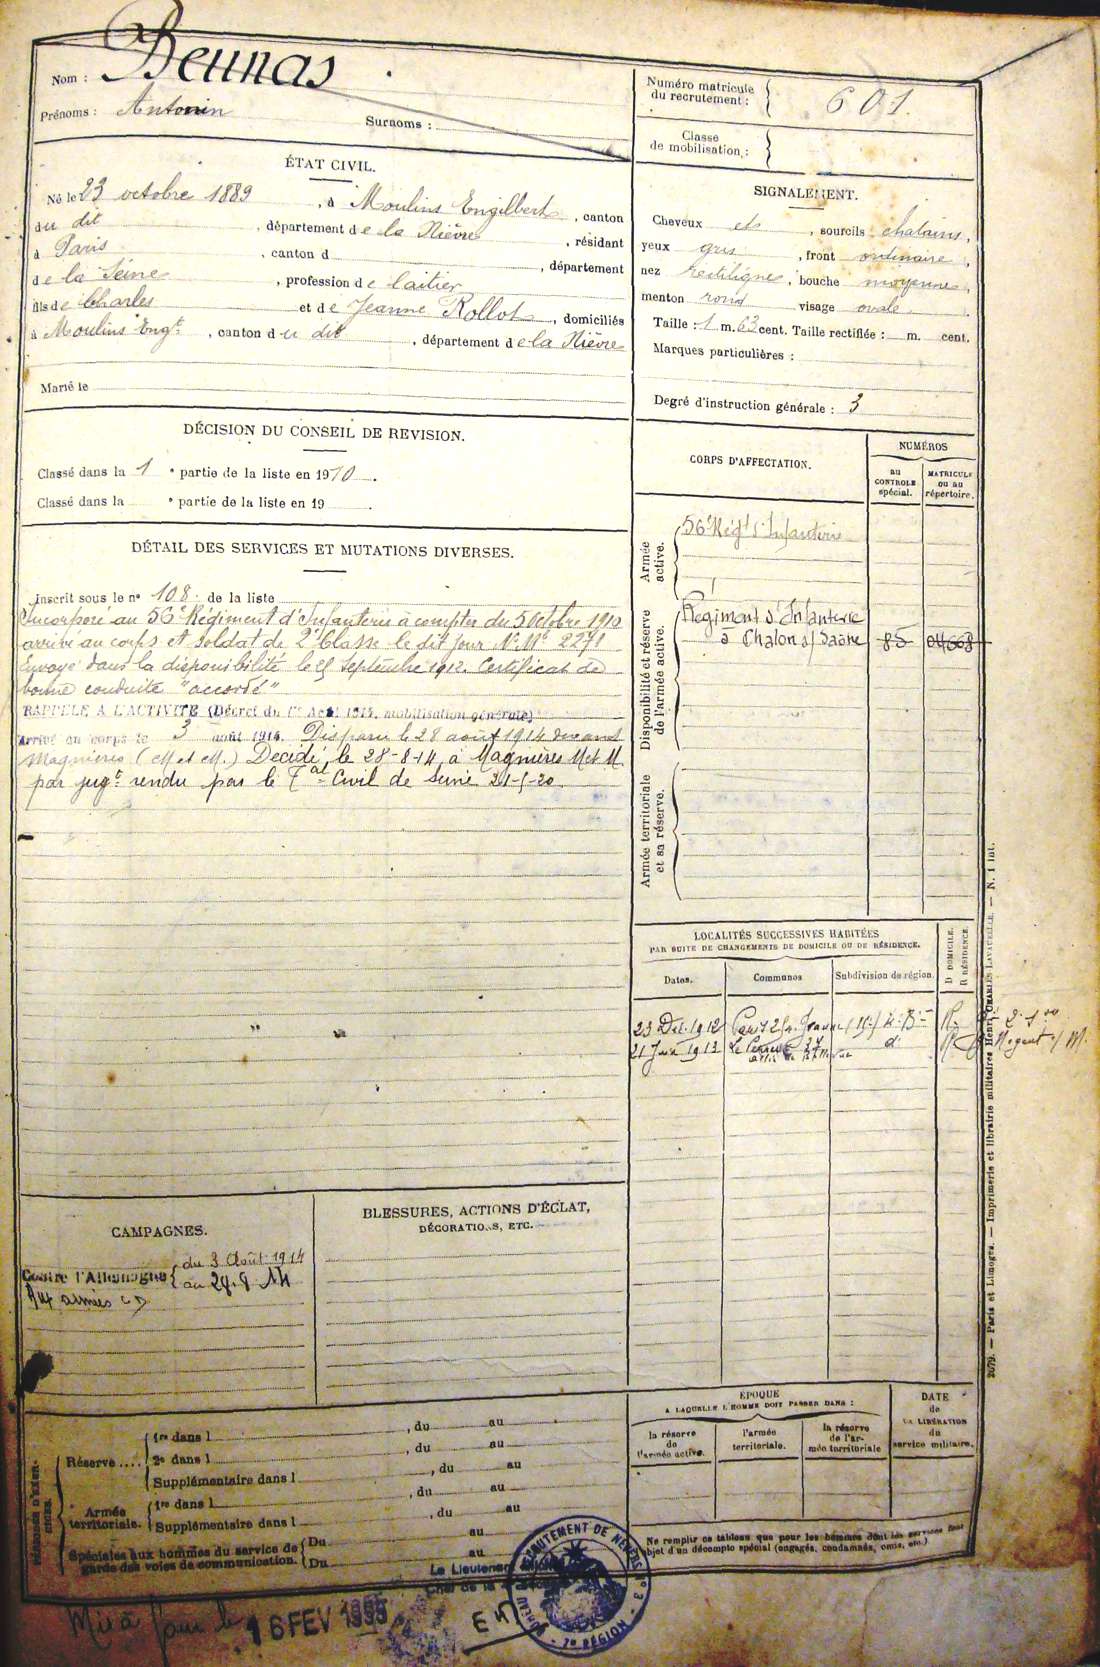 Nom : Beunas
Prénoms : Antonin
Surnoms :
Numéro matricule du recrutement : 601.
Classe de mobilisation :
ÉTAT CIVIL.
Né le 23 octobre 1889, à Moulins Engilbert, canton
du dit, département de la Nièvre, résidant
à Paris, canton d, département
de la Seine, profession de laitier
fils de Charles et de Jeanne Rollot, domiciliés
à Moulins Engt, canton du dit, département de la Nièvre
Marié le
SIGNALEMENT.
Cheveux et, sourcils chatains,
yeux gris, front ordinaire,
nez rectiligne, bouche moyenne,
menton rond visage ovale.
Taille : 1 m. 63 cent. Taille rectifiée : m. cent.
Marques particulières :
Degré d'instruction générale : 3
DÉCISION DU CONSEIL DE REVISION.
Classé dans la 1 e partie de la liste en 1910.
Classé dans la e partie de la liste en 19 .
DÉTAIL DES SERVICES ET MUTATIONS DIVERSES.
Inscrit sous le no 108 de la liste
Incorporé au 56e Régiment d'Infanterie à compter du 5 Octobre 1910
arrivé au corps et soldat de 2e Classe le dit jour No Mle 2271
Envoyé dans la disponibilité le 25 Septembre 1912. Certificat de
bonne conduite "accordé"
RAPPELÉ A L'ACTIVITÉ (Décret du 1er Août 1914, mobilisation générale)
Arrivé au corps le 3 août 1914. Disparu le 28 août 1914 devant
Magnières (M et M.) Décidé le 28-8-14 à Magnières M et M.
par jugt rendu par le Tal Civil de Seine 21-5-20
CORPS D'AFFECTATION.
NUMÉROS
au CONTROLE spécial.
MATRICULE ou au répertoire.
Armée active.
56e Régt d'Infanterie
Disponibilité et réserve de l'armée active.
Régiment d'Infanterie
à Chalon s/ Saône 85 04668
Armée territoriale et sa réserve.
LOCALITÉS SUCCESSIVES HABITÉES
PAR SUITE DE CHANGEMENTS DE DOMICILE OU DE RÉSIDENCE.
Dates.
Communes
Subdivision de région.
D DOMICILE.
R RÉSIDENCE.
23 Dec. 1912 Paris 2 R.
21 Juin 1913 Le Perreux 27 d° R. Nogent s/ M.
CAMPAGNES.
Contre l'Allemagne du 3 Août 1914
au 28.8.14
Aux armées CD
BLESSURES, ACTIONS D'ÉCLAT,
DÉCORATIONS, ETC.
ÉPOQUE
A LAQUELLE L'HOMME DOIT PASSER DANS :
la réserve de l'armée active.
l'armée territoriale.
la réserve de l'armée territoriale
DATE de LA LIBÉRATION du service militaire.
PÉRIODES D'EXERCICES.
Réserve .... 1re dans l , du au
2e dans l , du au
Supplémentaire dans l , du au
Armée territoriale. 1re dans l , du au
Supplémentaire dans l , du au
Spéciales aux hommes du service de garde des voies de communication. Du au
Du au
Ne remplir ce tableau que pour les hommes dont les services font
objet d'un décompte spécial (engagés, condamnés, omis, etc.)
Le Lieutenant
Chef de la
BUREAU DE RECRUTEMENT DE NEVERS No 3
7e RÉGION
Mis à jour le 16 FEV 1935
2079. — Paris et Limoges. — Imprimerie et librairie militaires Henri CHARLES-LAVAUZELLE. — N. 1 int.